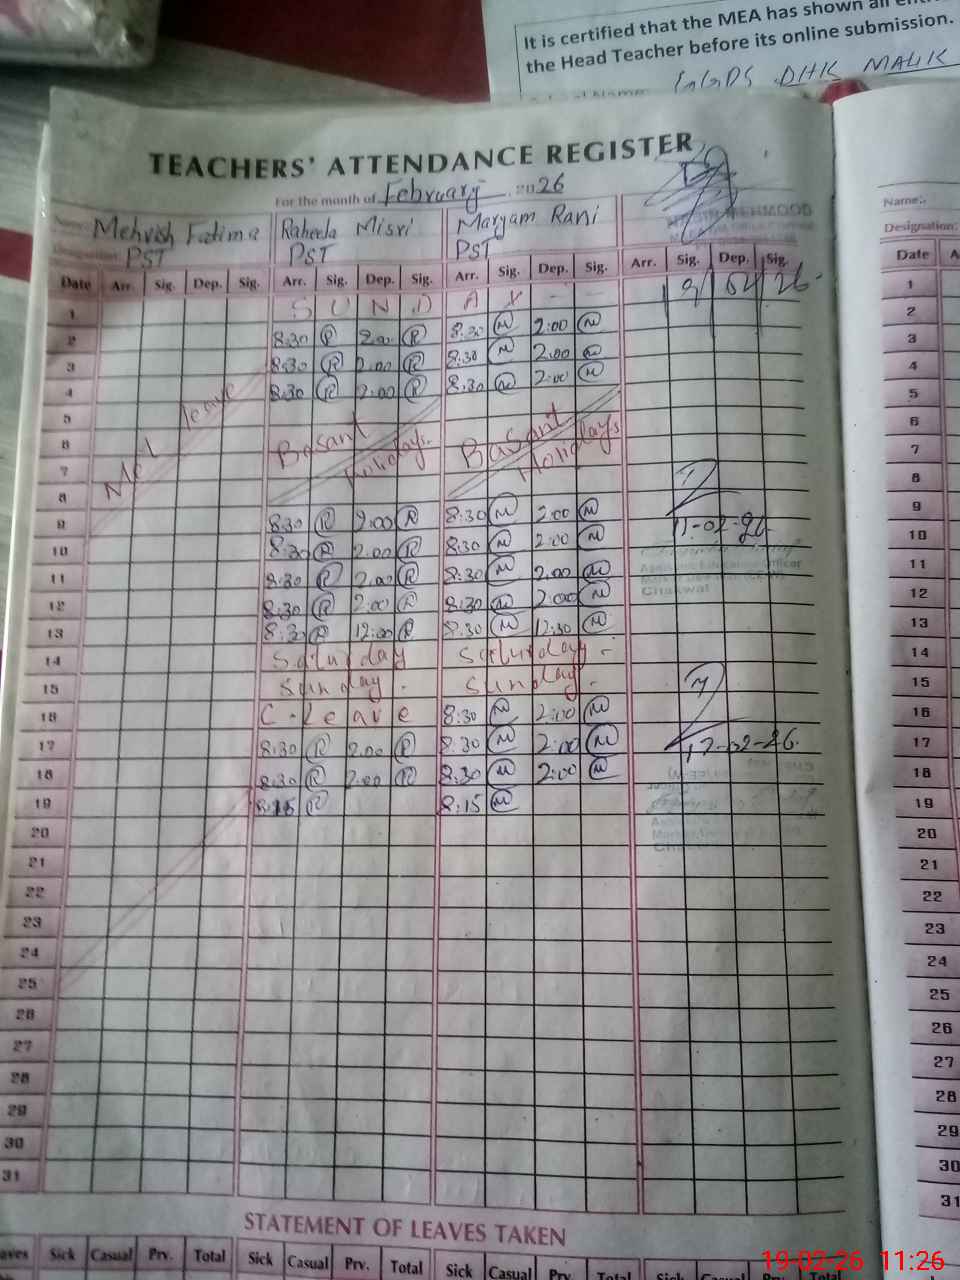 It is certified that the MEA has shown all
the Head Teacher before its online submission.
GGPS DHK MALIK
TEACHERS' ATTENDANCE REGISTER
For the month of February 2026
Mehvish Fatima Raheela Misri Maryam Rani
PST PST PST
Name:
Designation:
Date Arr. Sig. Dep. Sig. Arr. Sig. Dep. Sig. Arr. Sig. Dep. Sig. Arr. Sig. Dep. Sig.
Date
1 S U N D A Y 1
2 8:30 R 2:00 R 8:30 M 2:00 M 2
3 8:30 R 2:00 R 8:30 M 2:00 M 3
4 8:30 R 2:00 R 8:30 M 2:00 M 4
leave
5 5
6 Basant Basant 6
7 Holidays. Holidays 7
8 8
9 8:30 R 2:00 R 8:30 M 2:00 M 11-02-26 9
10 8:30 R 2:00 R 8:30 M 2:00 M 10
11 8:30 R 2:00 R 8:30 M 2:00 M 11
Chakwal
12 8:30 R 2:00 R 8:30 M 2:00 M 12
13 8:30 R 12:00 R 8:30 M 12:30 M 13
14 Saturday Saturday - 14
15 Sunday - Sunday - 15
16 C - Leave 8:30 M 2:00 M 16
17 8:30 R 2:00 R 8:30 M 2:00 M 17-02-26. 17
18 8:30 R 2:00 R 8:30 M 2:00 M 18
19 8:15 R 8:15 M 19
20 20
21 21
22 22
23 23
24 24
25 25
26 26
27 27
28 28
29 29
30 30
31 31
STATEMENT OF LEAVES TAKEN
Sick Casual Prv. Total Sick Casual Prv. Total Sick Casual Prv. Total Sick Casual Prv. Total
19-02-26 11:26